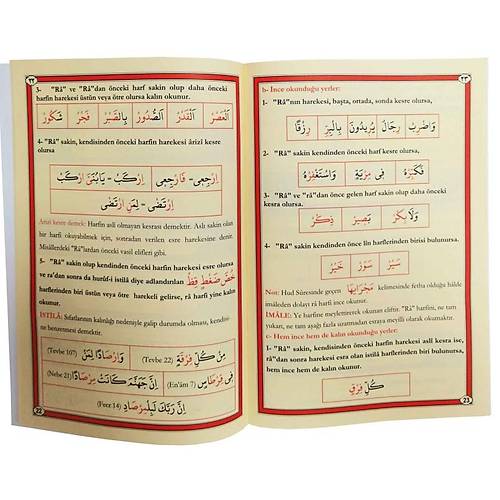 ٢٢
3- "Râ" ve "Râ"dan önceki harf sakin olup daha önceki
harfin harekesi üstün veya ötre olursa kalın okunur.
اَلْعَصْرْ اَلْقَدْرْ اَلصُّدُورْ بِالصَّبْرْ فَجْرْ شَكُورْ
4- "Râ" sakin, kendisinden önceki harfin harekesi ârizî kesre
olursa
اِرْجِعِى - فَارْجِعِى اِرْكَبْ - يَابُنَىَّ ارْكَبْ
اِرْتَضٰى - لِمَنِ ارْتَضٰى
Arızi kesre demek: Harfin asli olmayan kesrası demektir. Aslı sakin olan
bir harfi okuyabilmek için, sonradan verilen esre harekesine denir.
Misâllerdeki "Râ"lardan önceki vasıl elifleri gibi.
5- "Râ" sakin olup kendinden önceki harfin harekesi esre olursa
ve ra'dan sonra da hurûf-i istilâ diye adlandırılan خُصَّ ضَغْطٍ قِظْ
harflerinden biri üstün veya ötre harekeli gelirse, râ harfi yine kalın
okunur.
İSTİLÂ: Sıfatlarının kalınlığı nedeniyle galip durumda olması, kendisi-
ne benzetmesi demektir.
(Tevbe 107) وَاِرْصَادًا لِمَنْ (Tevbe 22) مِنْ كُلِّ فِرْقَةٍ
(Nebe 21) اِنَّ جَهَنَّمَ كَانَتْ مِرْصَادًا (En'âm 7) فِى قِرْطَاسٍ
(Fecr 14) اِنَّ رَبَّكَ لَبِالْمِرْصَادِ
22
٢٣
b- İnce okunduğu yerler:
1- "Râ"nın harekesi, başta, ortada, sonda kesre olursa,
وَاضْرِبْ رِجَالٌ يُرِيدُونَ بِالْبِرِّ رِزْقًا
2- "Râ" sakin kendinden önceki harf kesre olursa,
فَكَبِّرْهُ فِى مِرْيَةٍ وَاسْتَغْفِرْهُ
3- "Râ" ve "râ"dan önce gelen harf sakin olup daha öncesi
kesra olursa.
وَلَابِكْرْ بَصِيرْ ذِكْرْ
4- "Râ" sakin kendinden önce lîn harflerinden birisi bulunursa.
سَيْرْ سَوْرْ خَيْرْ
Not: Hud Sûresinde geçen مَجْرٰيهَا kelimesinde fetha olduğu hâlde
imâleden dolayı râ harfi ince okunur.
İMÂLE: Ye harfine meylettirerek okunan eliftir. "RÂ" harfini, ne tam
yukarı, ne tam aşağı fazla uzatmadan esraya meyilli olarak okumaktır.
c- Hem ince hem de kalın okunduğu yerler:
1- "Râ" sakin, kendisinden önceki harfin harekesi aslî kesra ise,
râ'dan sonra harekesi esra olan istilâ harflerinden biri bulunursa,
hem ince hem de kalın okunur.
كُلُّ فِرْقٍ
23